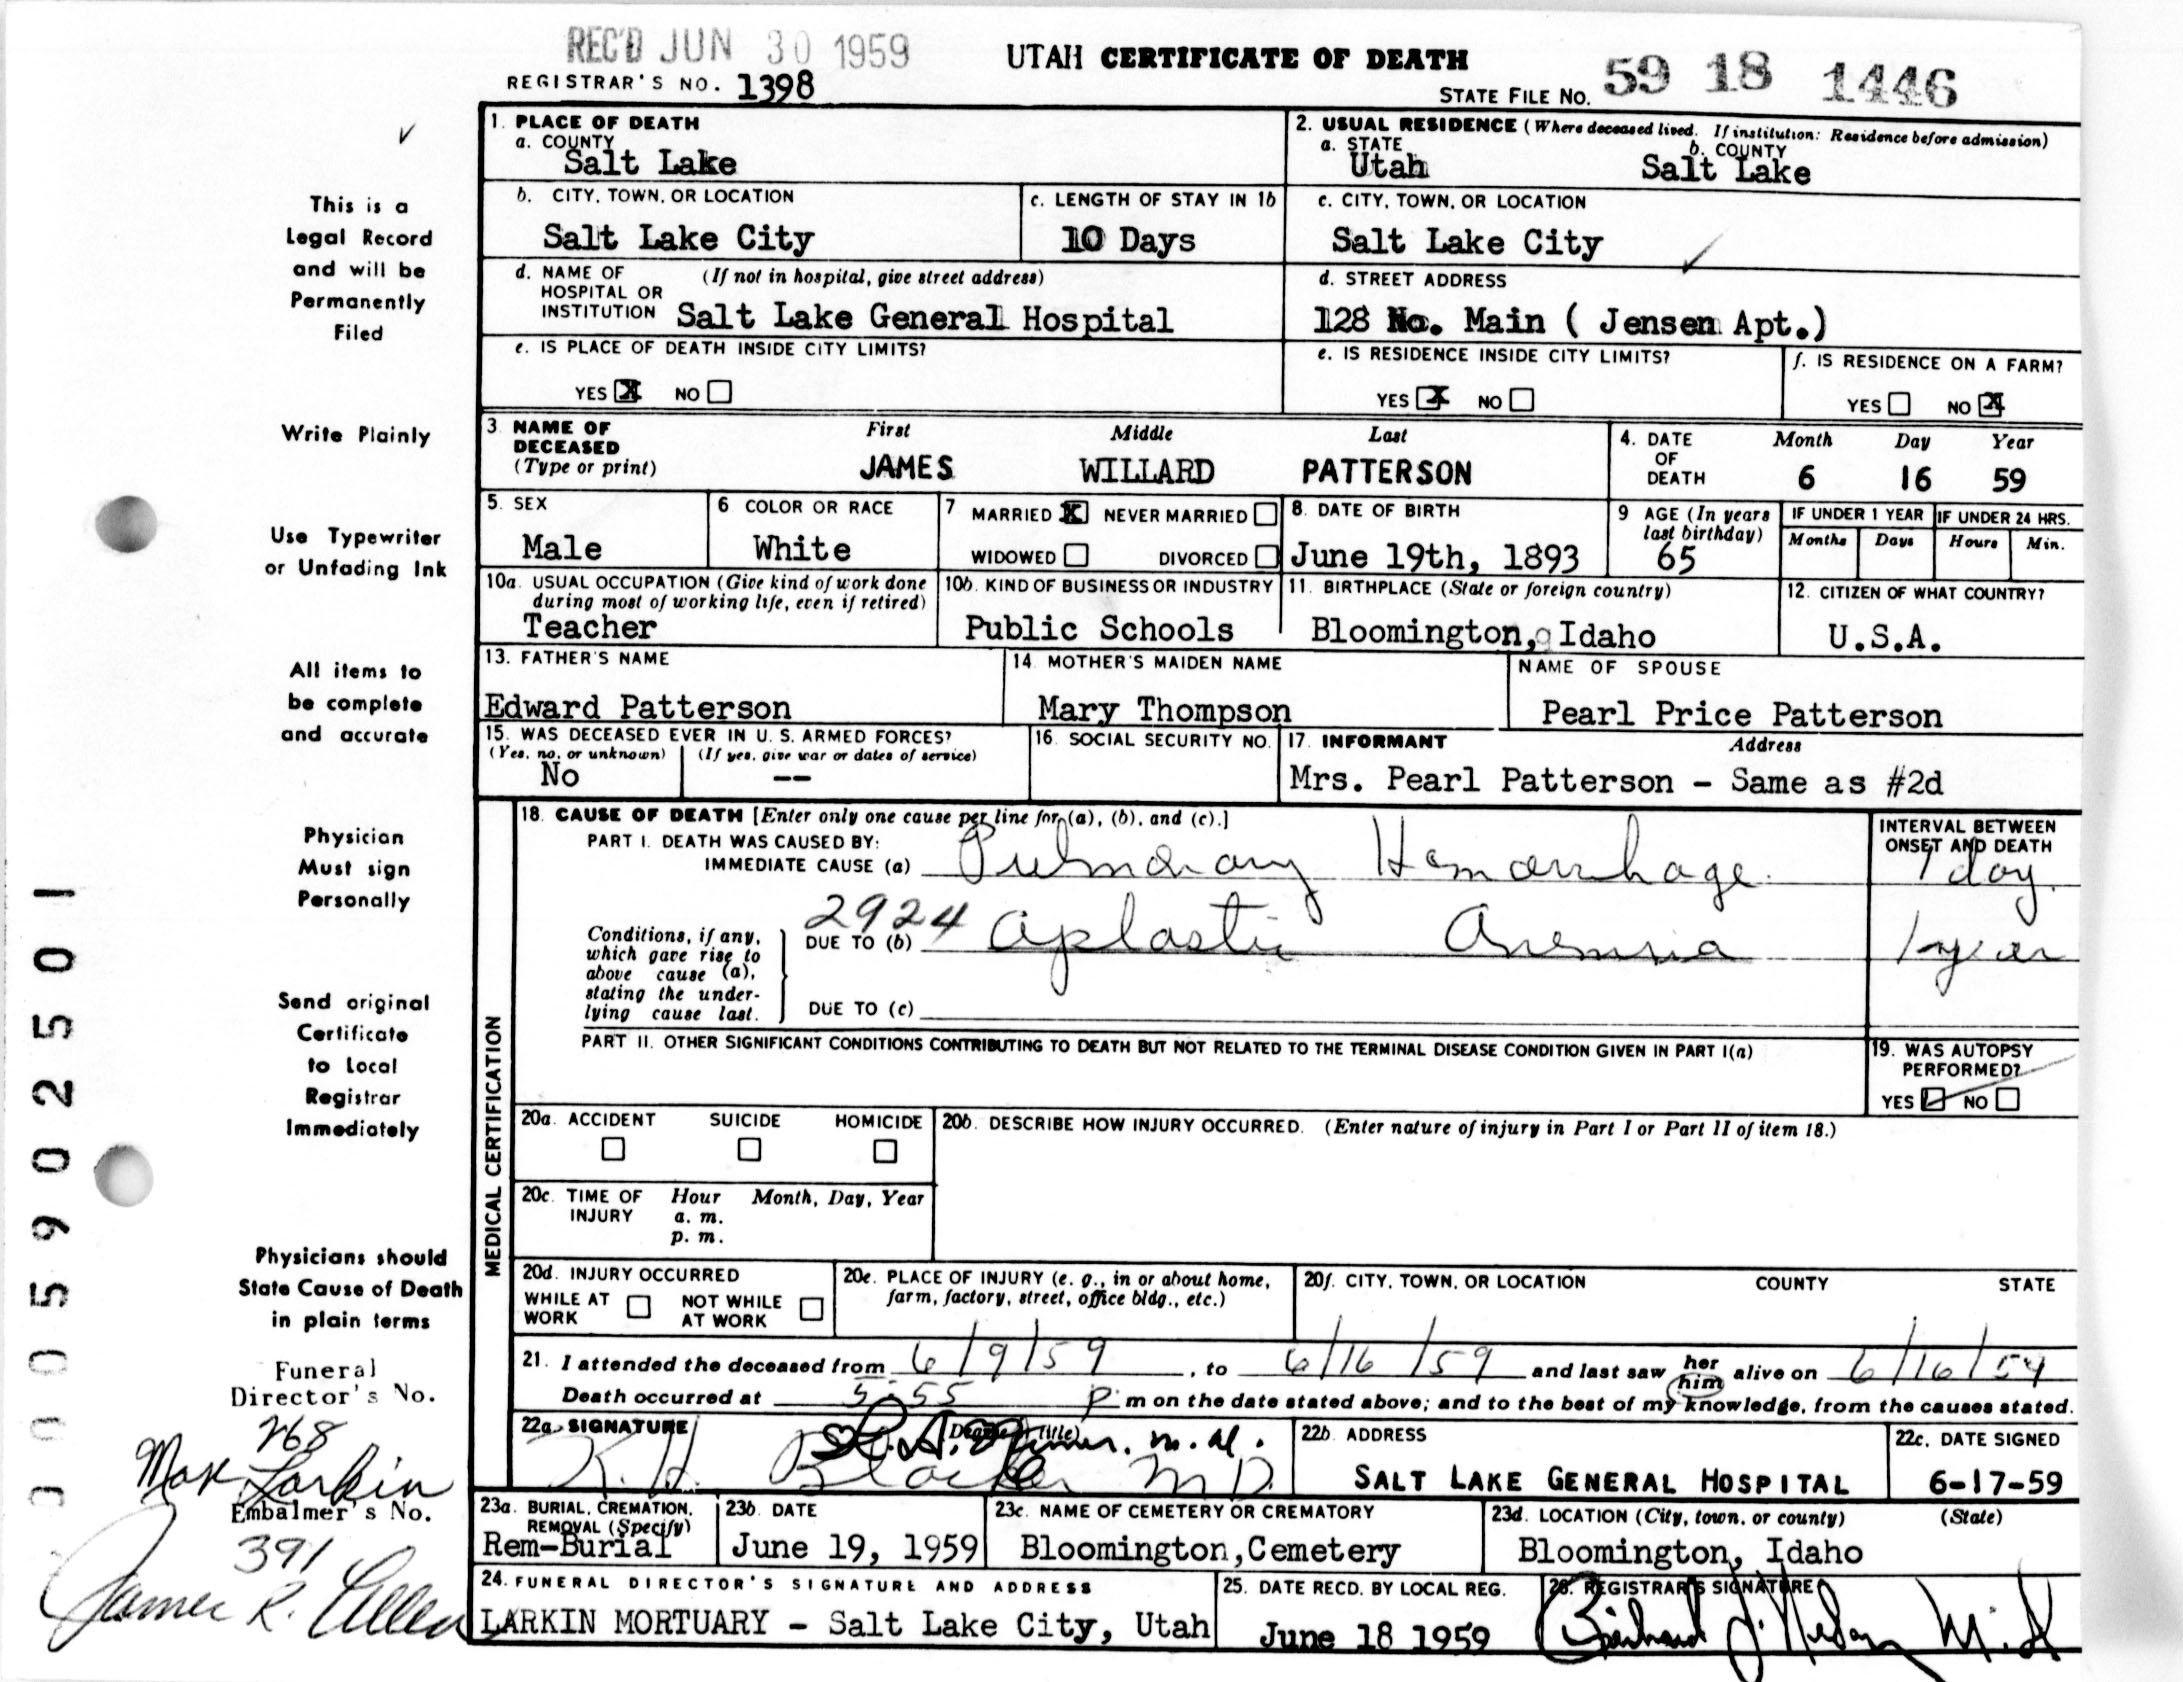 REC'D JUN 30 1959
UTAH CERTIFICATE OF DEATH
REGISTRAR'S NO. 1398
STATE FILE NO. 59 18 1446
1. PLACE OF DEATH
a. COUNTY
Salt Lake
2. USUAL RESIDENCE (Where deceased lived. If institution: Residence before admission)
a. STATE
Utah
b. COUNTY
Salt Lake
b. CITY, TOWN, OR LOCATION
Salt Lake City
c. LENGTH OF STAY IN 1b
10 Days
c. CITY, TOWN, OR LOCATION
Salt Lake City
d. NAME OF HOSPITAL OR INSTITUTION
(If not in hospital, give street address)
Salt Lake General Hospital
d. STREET ADDRESS
128 No. Main ( Jensen Apt.)
e. IS PLACE OF DEATH INSIDE CITY LIMITS?
YES X NO
e. IS RESIDENCE INSIDE CITY LIMITS?
YES X NO
f. IS RESIDENCE ON A FARM?
YES NO X
3. NAME OF DECEASED
(Type or print)
First Middle Last
JAMES WILLARD PATTERSON
4. DATE OF DEATH
Month Day Year
6 16 59
5. SEX
Male
6 COLOR OR RACE
White
7 MARRIED X NEVER MARRIED
WIDOWED DIVORCED
8. DATE OF BIRTH
June 19th, 1893
9 AGE (In years last birthday)
65
IF UNDER 1 YEAR
Months Days
IF UNDER 24 HRS.
Hours Min.
10a. USUAL OCCUPATION (Give kind of work done during most of working life, even if retired)
Teacher
10b. KIND OF BUSINESS OR INDUSTRY
Public Schools
11. BIRTHPLACE (State or foreign country)
Bloomington, Idaho
12. CITIZEN OF WHAT COUNTRY?
U.S.A.
13. FATHER'S NAME
Edward Patterson
14. MOTHER'S MAIDEN NAME
Mary Thompson
NAME OF SPOUSE
Pearl Price Patterson
15. WAS DECEASED EVER IN U. S. ARMED FORCES?
(Yes, no, or unknown) (If yes, give war or dates of service)
No --
16. SOCIAL SECURITY NO.
17. INFORMANT Address
Mrs. Pearl Patterson - Same as #2d
MEDICAL CERTIFICATION
18. CAUSE OF DEATH [Enter only one cause per line for (a), (b), and (c).]
PART I. DEATH WAS CAUSED BY:
IMMEDIATE CAUSE (a) Pulmonary Hemorrhage
INTERVAL BETWEEN ONSET AND DEATH
1 day
Conditions, if any, which gave rise to above cause (a), stating the underlying cause last.
2924
DUE TO (b) Aplastic Anemia
1 year
DUE TO (c)
PART II. OTHER SIGNIFICANT CONDITIONS CONTRIBUTING TO DEATH BUT NOT RELATED TO THE TERMINAL DISEASE CONDITION GIVEN IN PART I(a)
19. WAS AUTOPSY PERFORMED?
YES NO
20a. ACCIDENT SUICIDE HOMICIDE
20b. DESCRIBE HOW INJURY OCCURRED. (Enter nature of injury in Part I or Part II of item 18.)
20c. TIME OF INJURY
Hour Month, Day, Year
a. m.
p. m.
20d. INJURY OCCURRED
WHILE AT WORK NOT WHILE AT WORK
20e. PLACE OF INJURY (e. g., in or about home, farm, factory, street, office bldg., etc.)
20f. CITY, TOWN, OR LOCATION COUNTY STATE
21. I attended the deceased from 6/9/59, to 6/16/59 and last saw her him alive on 6/16/59
Death occurred at 5:55 P m on the date stated above; and to the best of my knowledge, from the causes stated.
22a. SIGNATURE (Degree or title)
K. H. M.D.
22b. ADDRESS
SALT LAKE GENERAL HOSPITAL
22c. DATE SIGNED
6-17-59
23a. BURIAL, CREMATION, REMOVAL (Specify)
Rem-Burial
23b. DATE
June 19, 1959
23c. NAME OF CEMETERY OR CREMATORY
Bloomington,Cemetery
23d. LOCATION (City, town, or county) (State)
Bloomington, Idaho
24. FUNERAL DIRECTOR'S SIGNATURE AND ADDRESS
LARKIN MORTUARY - Salt Lake City, Utah
25. DATE RECD. BY LOCAL REG.
June 18 1959
26. REGISTRAR'S SIGNATURE
This is a
Legal Record
and will be
Permanently
Filed
Write Plainly
Use Typewriter
or Unfading Ink
All items to
be complete
and accurate
Physician
Must sign
Personally
Send original
Certificate
to Local
Registrar
Immediately
Physicians should
State Cause of Death
in plain terms
Funeral
Director's No.
268
Max Larkin
Embalmer's No.
391
James R. Allen
005902501